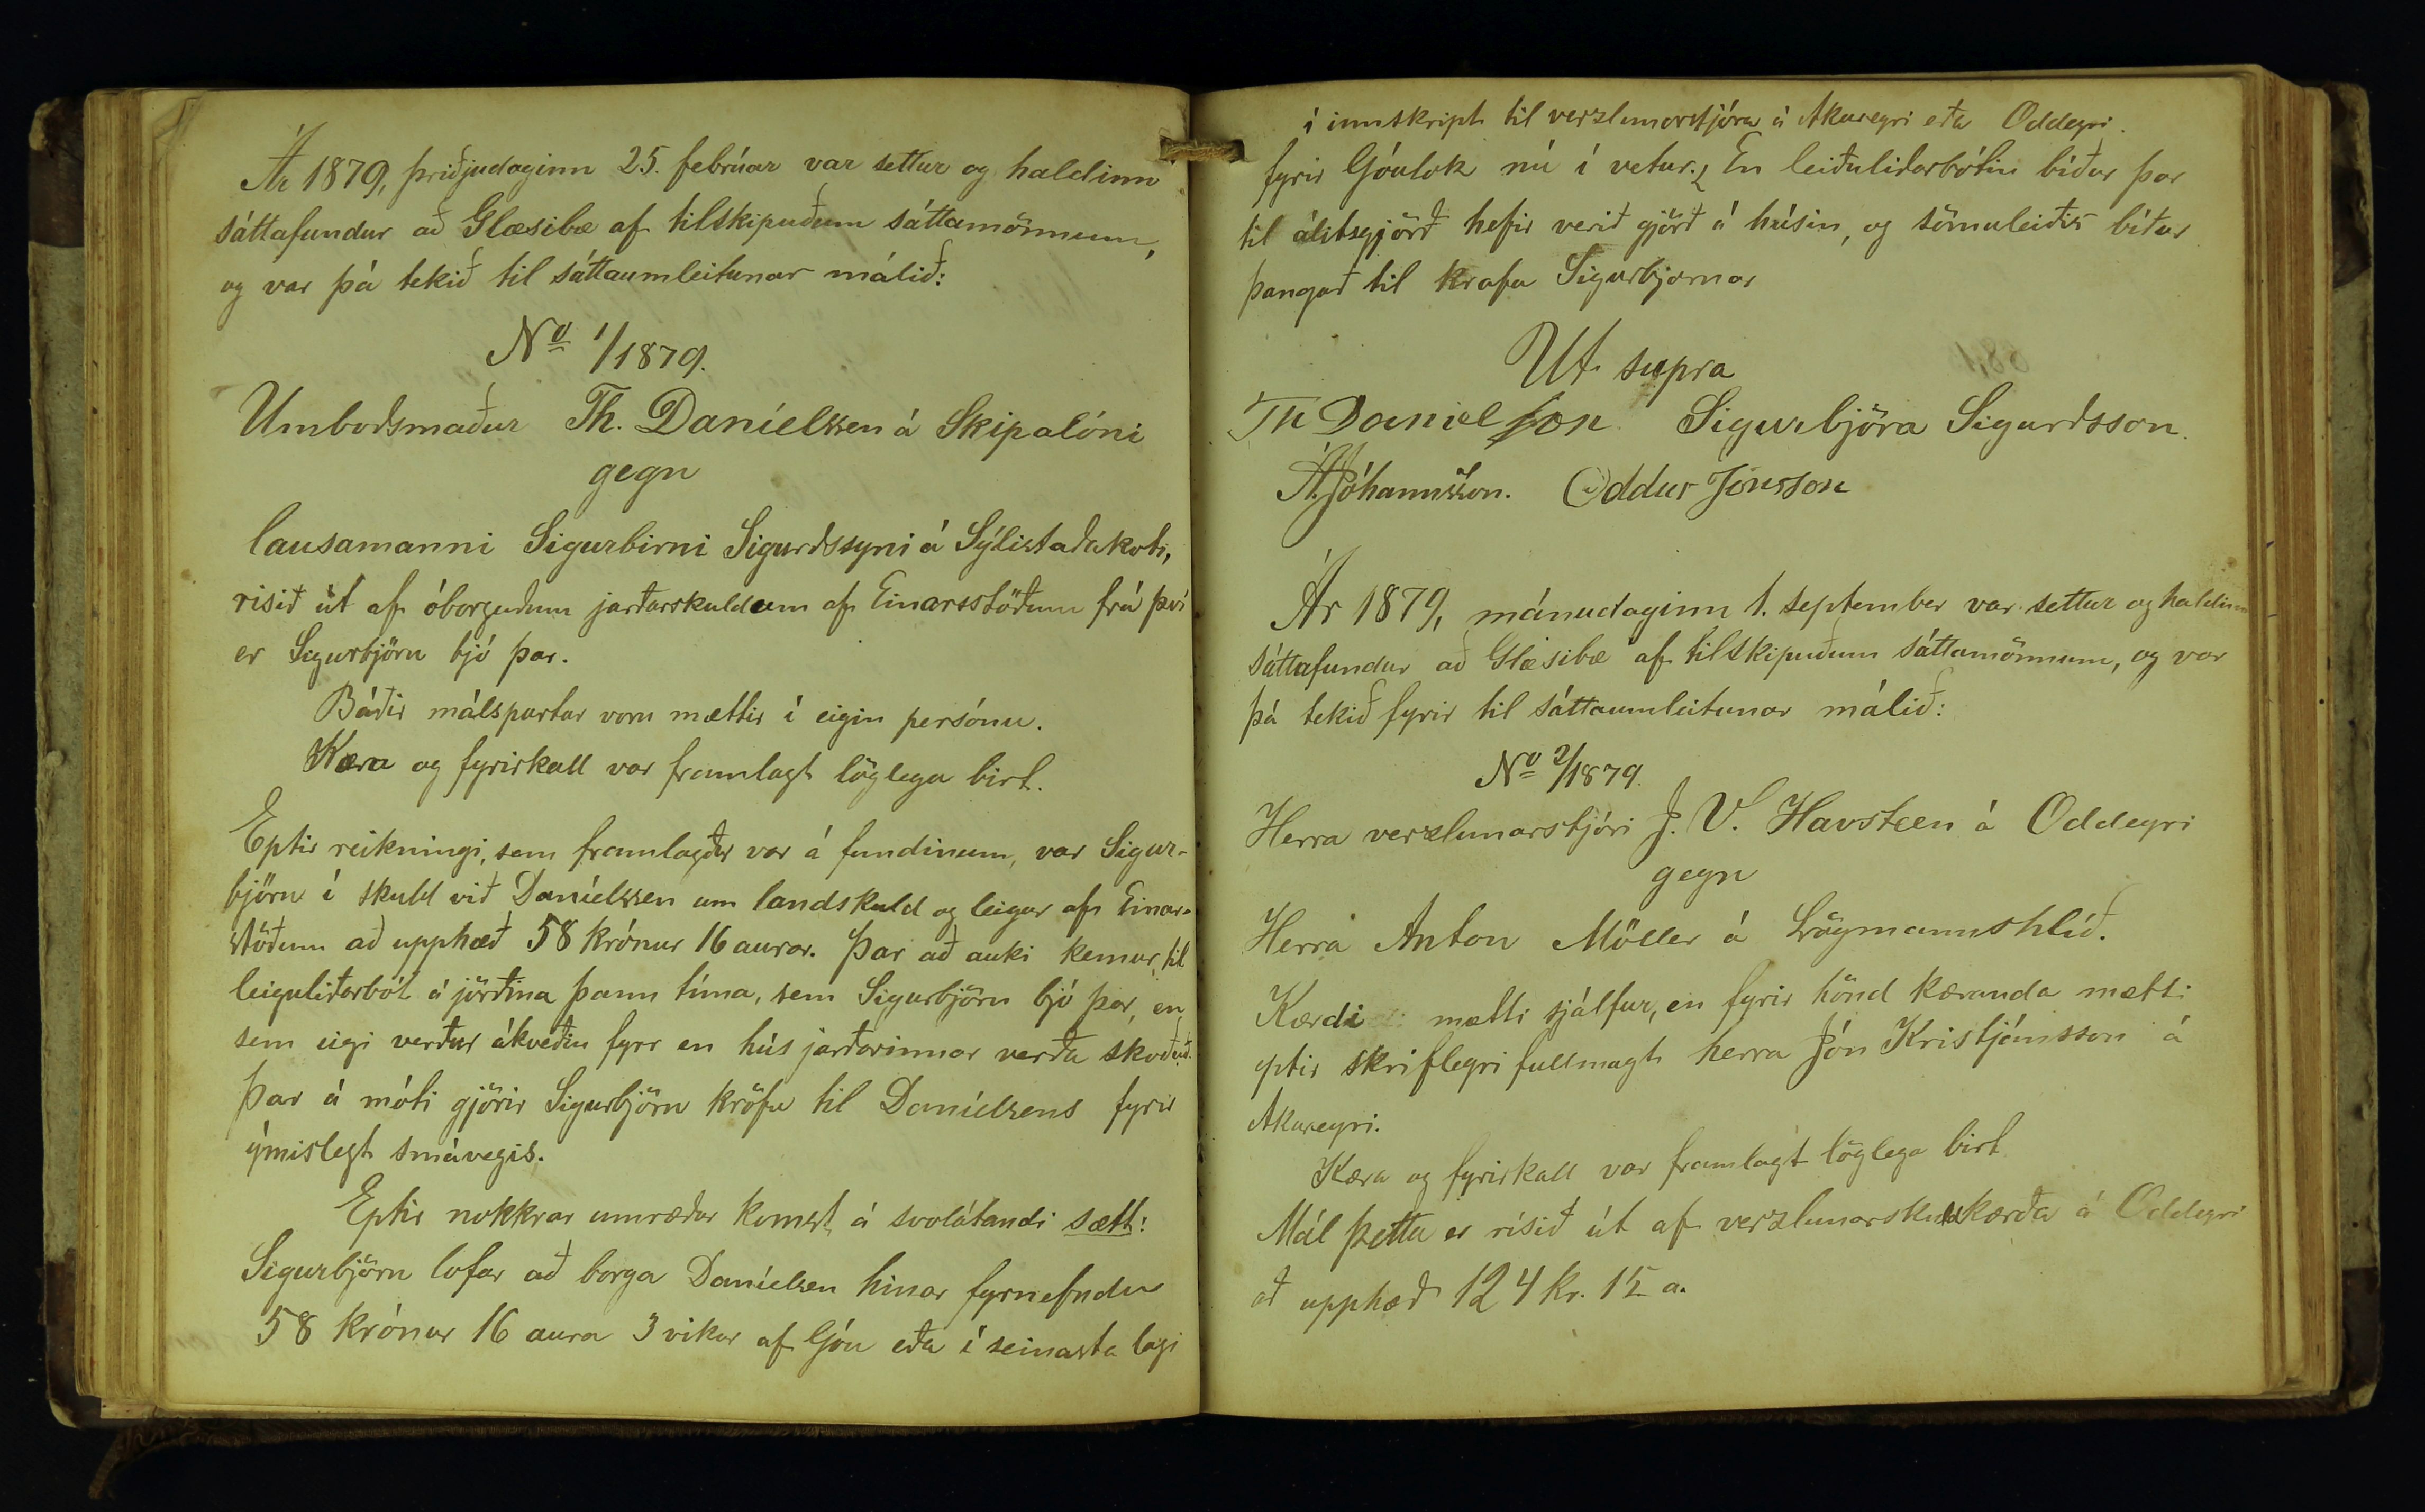 Ár 1879, þriðjudaginn 25. febrúar var settur og haldinn
sáttafundur að Glæsibæ af tilskipuðum sáttamönnum,
og var þá tekið til sáttaumleitunar málið:
No 1/1879.
Umboðsmaður Th. Daníelssen á Skipalóni
gegn
lausamanni Sigurbirni Sigurðssyni á Sýlistaðakoti,
risið út af óborguðum jarðarskuldum af Einarsstöðum frá því
er Sigurbjörn bjó þar.
Báðir málspartar voru mættir í eigin persónu.
Kæra og fyrirkall var framlagt löglega birt.
Eptir reikningi, sem framlagður var á fundinum, var Sigur-
björn í skuld við Daníelssen um landskuld og leigur af Einar-
stöðum að upphæð 58 krónur 16 aurar. Þar að auki kemur til
leiguliðarbót á jörðina þann tíma, sem Sigurbjörn bjó þar, en
sem eigi verður ákveðin fyrr en hús jarðarinnar verða skoðuð.
Þar á móti gjörir Sigurbjörn kröfu til Daníelsens fyrir
ýmislegt smávegis.
Eptir nokkrar umræður komst á svolátandi sætt:
Sigurbjörn lofar að borga Daníelsen hinar fyrnefndu
58 krónur 16 aura 3 vikur af Góu eða í seinasta lagi
í innskript til verzlunarstjóra á Akureyri eða Oddeyri
fyrir Góulok nú í vetur. En leiðuliðarbótin bíður þar
til álitsgjörð hefir verið gjörð á húsin, og sömuleiðis bíður
þangað til krafa Sigurbjarnar
Ut supra
Th Danielsson Sigurbjörn Sigurðsson.
Á. Jóhannsson. Oddur Jónsson
Ár 1879, mánudaginn 1. september var settur og haldinn
sáttafundur að Glæsibæ af tilskipuðum sáttamönnum, og var
þá tekið fyrir til sáttaumleitunar málið:
No 2/1879.
Herra verzlunarstjóri J. V. Havsteen á Oddeyri
gegn
Herra Anton Möller á Lögmannshlíð.
Kærdi mætti sjálfur, en fyrir hönd kæranda mætti
eptir skriflegri fullmagt herra Jón Kristjánsson á
Akureyri.
Kæra og fyrirkall var framlagt löglega birt
Mál þetta er rísið út af verzlunarskuld kærða á Oddeyri
að upphæð 124 kr. 15 a.